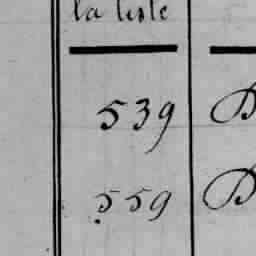 la liste
539 D
559 D